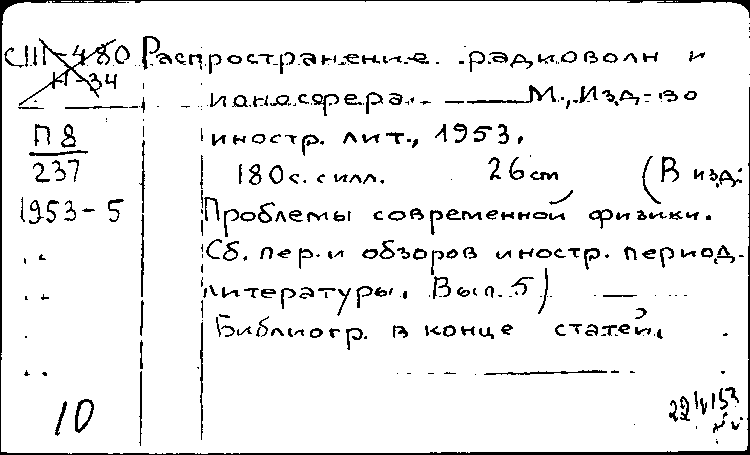 СШ-480 Распространение радиоволн и
Н-34
ионосфера. — М., Изд-во
П8 иностр. лит., 1953.
237 180 с. с илл. 26 cm (В изд:
1953-5 Проблемы современной физики.
Сб. пер. и обзоров иностр. период.
литературы. Вып. 5)
Библиогр. в конце статей.
10